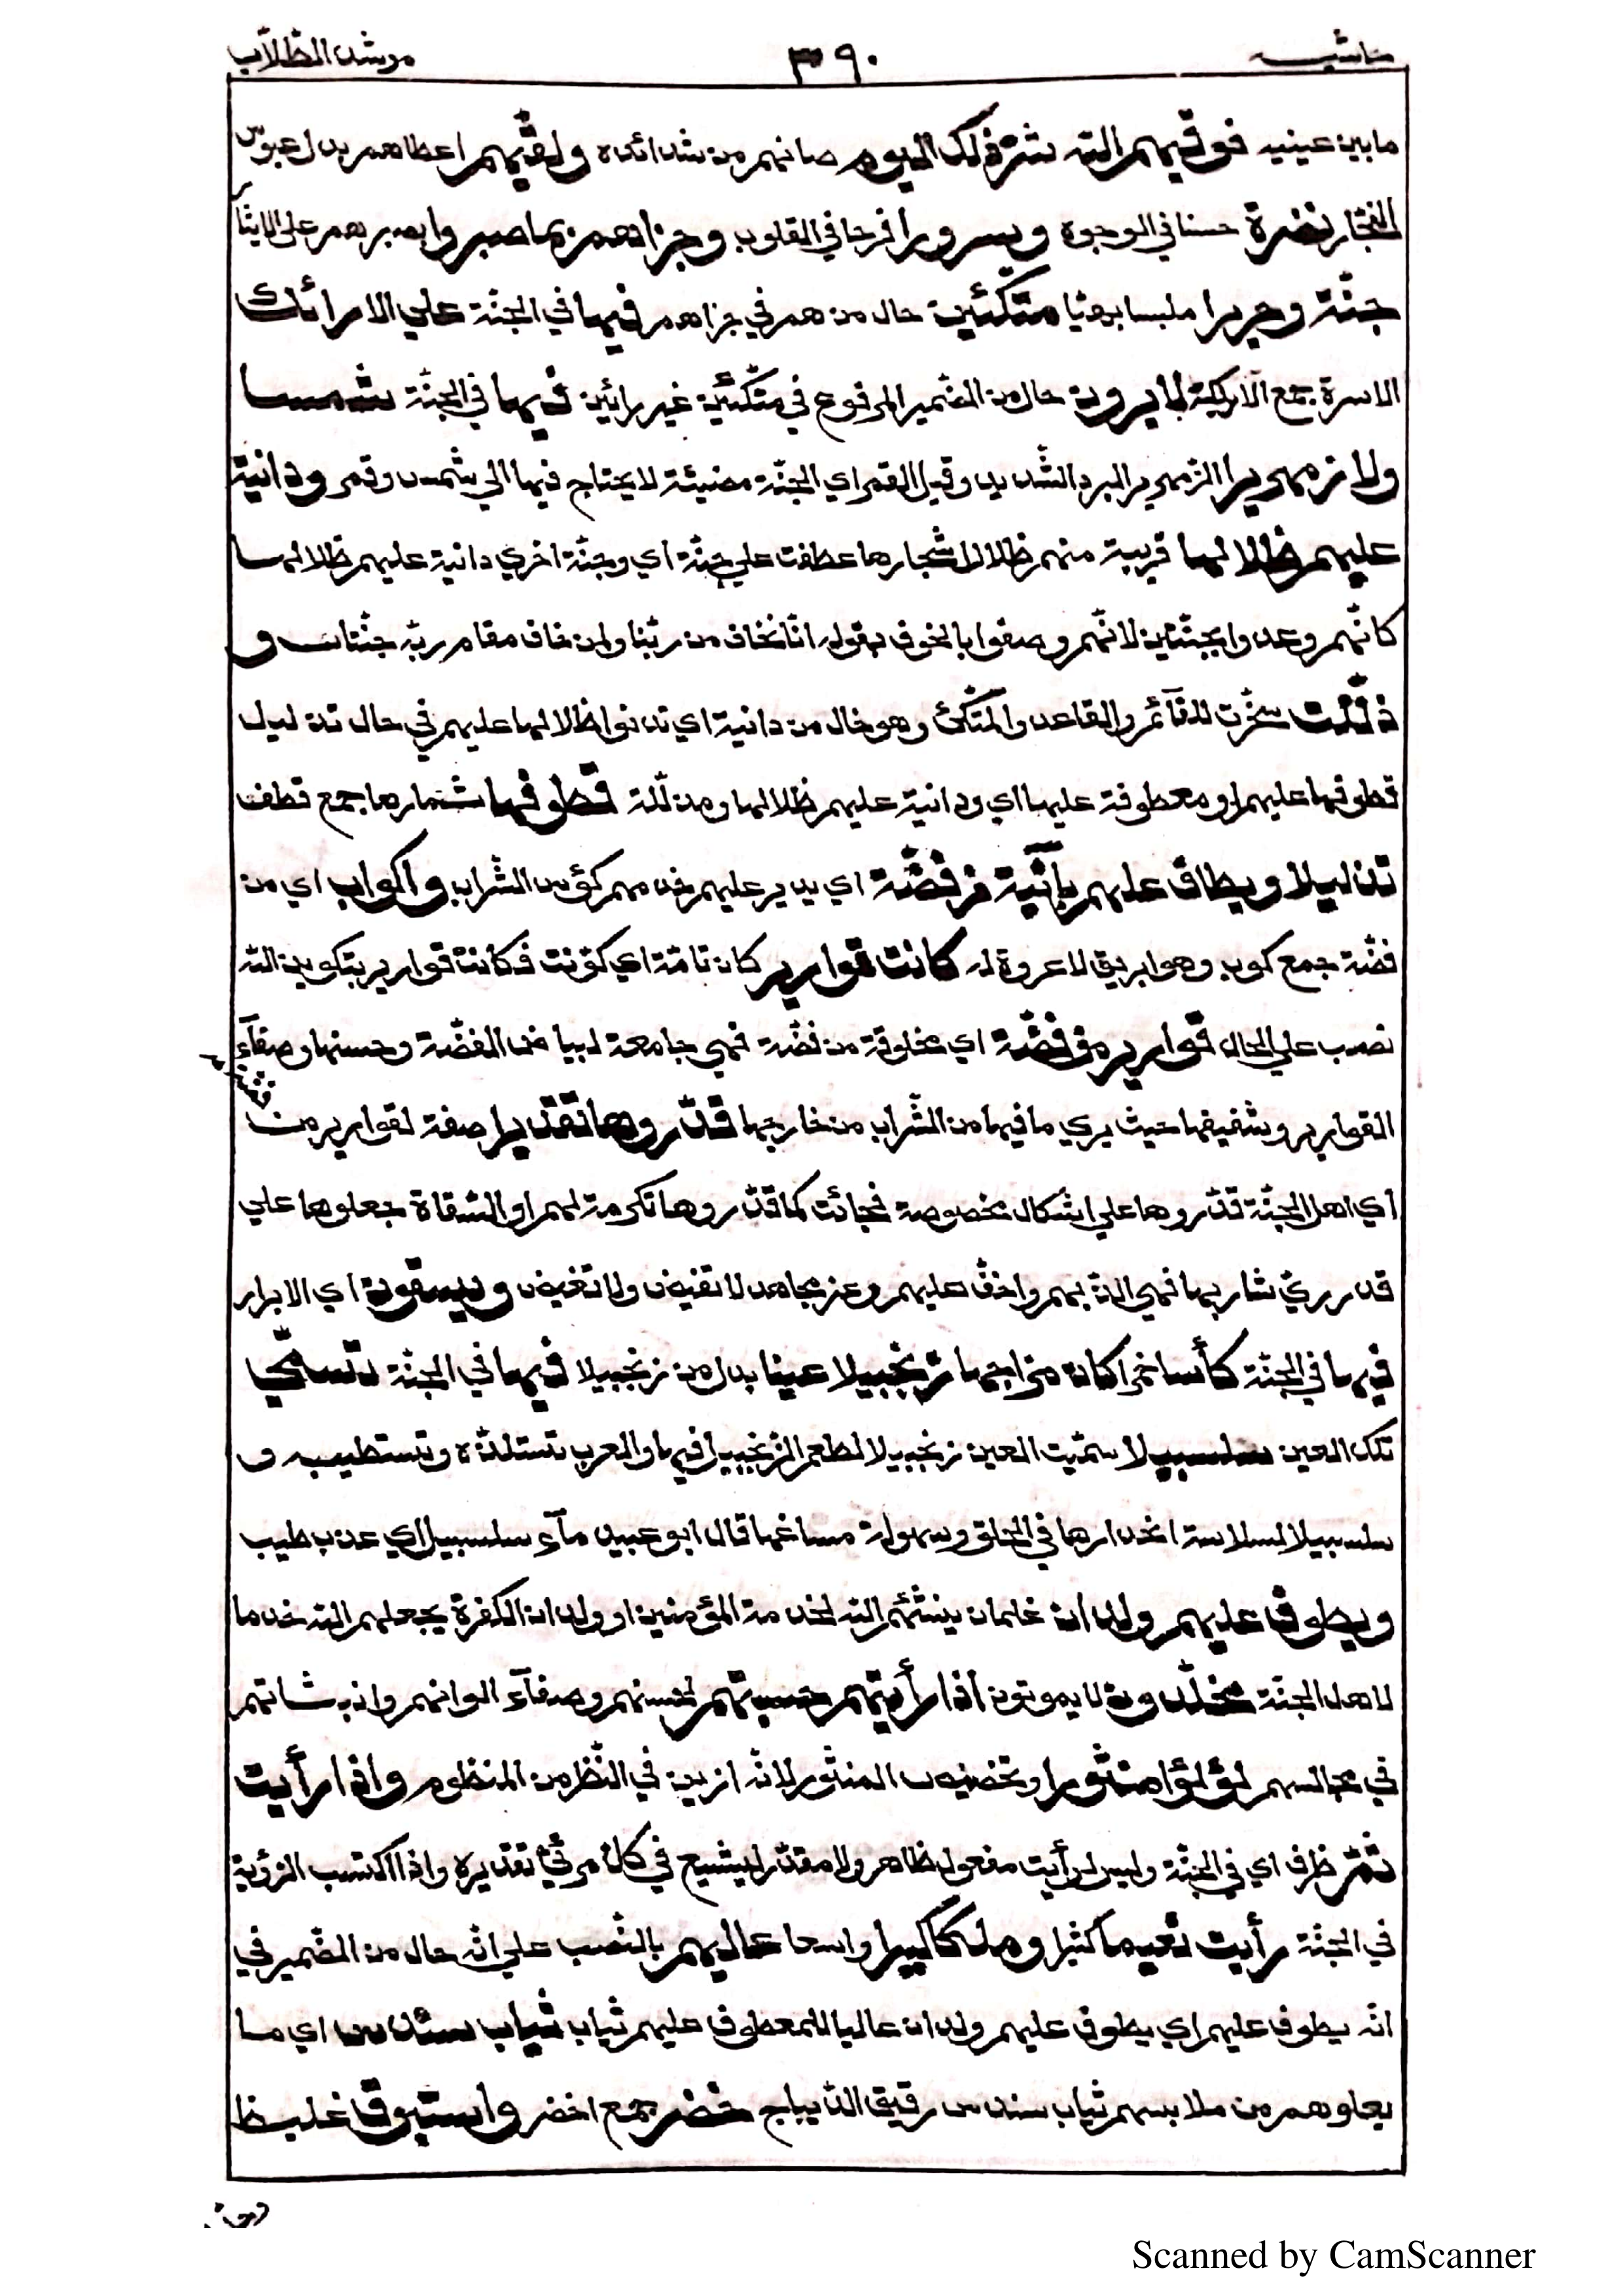 حاشيه ٣٩٠ مرشد الطّلاّب
مابين عينيه فوقيهم الله شرّ ذلك اليوم صانهم من شدائده ولقّيهم اعطاهم بدل عبوس
الفجّار نضرة حسنا في الوجوه وسرورا فرحا في القلوب وجزاهم بما صبروا بصبرهم على الايثار
جنّة وحريرا ملبسا بهيّا متّكئين حال من هم في جزاهم فيها في الجنّة علي الارائك
الاسرة جمع الاريكة لايرون حال من الضّمير المرفوع في متّكئين غير رائين فيها في الجنّة شمسا
ولا زمهريرا الزّمهرير البرد الشّديد وقيل القمر اي الجنّة مضيئة لا يحتاج فيها الي شمس وقمر ودانية
عليهم ظلالها قريبة منهم ظلال اشجارها عطفت علي جنّة اي وجنّة اخري دانية عليهم ظلالها
كانّهم وعدوا بجنّتين لانّهم وصفوا بالخوف بقوله انّا نخاف من ربّنا ولمن خاف مقام ربّه جنّتان و
ذلّلت سخّرت للقآئم والقاعد والمتّكئ وهو حال من دانية اي تدنوا ظلالها عليهم في حال تذليل
قطوفها عليهم او معطوفة عليها اي ودانية عليهم ظلالها ومذلّلة قطوفها ثمارها جمع قطف
تذليلا ويطاف عليهم بآنية من فضّة اي يدير عليهم خدمهم كؤس الشّراب واكواب اي من
فضّة جمع كوب وهو ابريق لا عروة له كانت قوارير كان تامّة اي كوّنت فكانت قوارير بتكوين الله
نصب علي الحال قوارير من فضّة اي مخلوقة من فضّة فهي جامعة لبياض الفضّة وحسنها وصفآء
القوارير وشفيفها حيث يري ما فيها من الشّراب من خارجها قدّروها تقديرا صفة لقوارير من
اي اهل الجنّة قدّروها علي اشكال مخصوصة فجائت كما قدّروها تكرمة لهم او السّقاة جعلوها علي
قدر ريّ شاربها فهي الذّ لهم واخفّ عليهم وعن مجاهد لا تفيض ولا تغيض ويسقون اي الابرار
فيها في الجنّة كأسا خمرا كان مزاجها زنجبيلا عينا بدل من زنجبيلا فيها في الجنّة تسمّي
تلك العين سلسبيلا سمّيت العين زنجبيلا لطعم الزّنجبيل فيها والعرب تستلذّه وتستطيبه و
سلسبيلا لسلاسة انحدارها في الحلق وسهولة مساغها قال ابو عبيد مآء سلسبيل اي عذب طيب
ويطوف عليهم ولدان غلمان ينشئهم الله لخدمة المؤمنين او ولدان الكفرة يجعلهم الله خدما
لاهل الجنّة مخلّدون لا يموتون اذا رأيتهم حسبتهم لحسنهم وصفآء الوانهم وانبثاثهم
في مجالسهم لؤلؤا منثورا وتخصيص المنثور لانّه ازين في النّظر من المنظوم واذا رأيت
ثمّ ظرف اي في الجنّة وليس لرأيت مفعول ظاهر ولا مقدّر ليشيع في كلّ مرئيّ تقديره واذا اكتسب الرّؤية
في الجنّة رأيت نعيما كثيرا وملكا كبيرا واسعا عاليهم بالنّصب علي انّه حال من الضّمير في
انّه يطوف عليهم اي يطوف عليهم ولدان عاليا للمعطوف عليهم ثياب ثياب سندس اي ما
يعلوهم من ملابسهم ثياب سندس رقيق الدّيباج خضر جمع اخضر واستبرق غليظ
Scanned by CamScanner